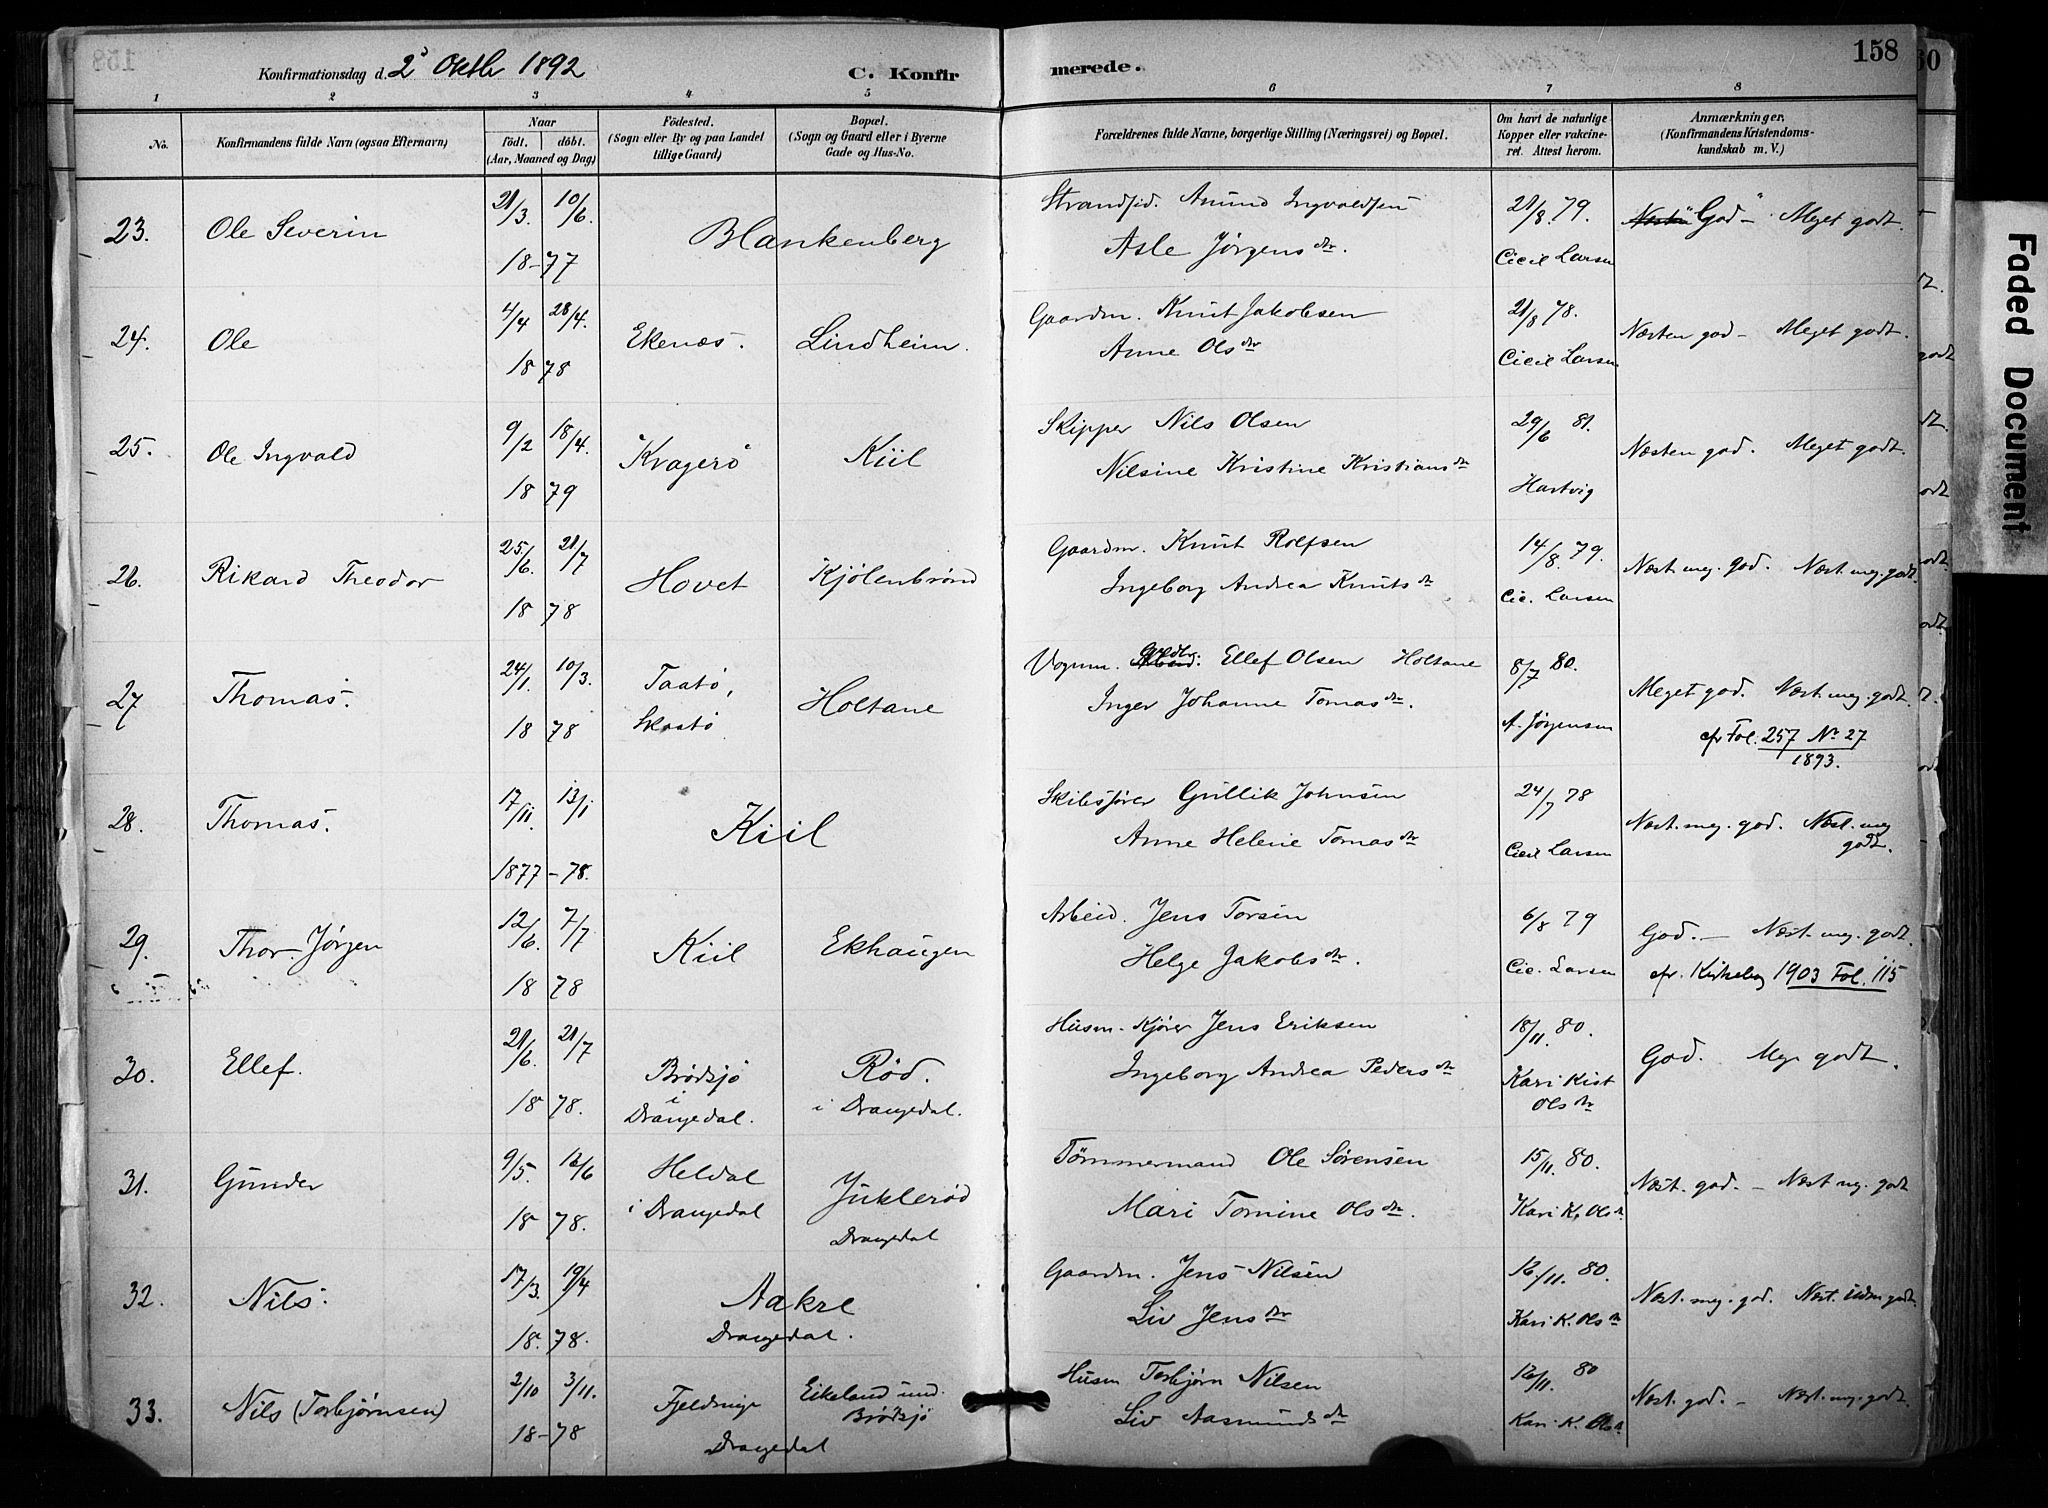 158
Konfirmationsdag d. 2den Oktb 1892
C. Konfirmerede.
1 2 3 4 5 6 7 8
No.
Konfirmandens fulde Navn (ogsaa Efternavn)
Naar
födt. döbt.
(Aar, Maaned og Dag)
Födested.
(Sogn eller By og paa Landet
tillige Gaard)
Bopæl.
(Sogn og Gaard eller i Byerne
Gade og Hus-No.
Forældrenes fulde Navne, borgerlige Stilling (Næringsvei) og Bopæl.
Om havt de naturlige
Kopper eller vakcine-
ret. Attest herom.
Anmærkninger.
(Konfirmandens Kristendoms-
kundskab m. V.)
23. Ole Severin 21/3. 10/6. 18-77 Blankenberg
Strandsid. Amund Ingvaldsen
Asle Jörgensdtr.
21/8. 79.
Cicil Larsen
Næsten God - Meget godt.
24. Ole 4/4 28/4. 18 78 Ekenæs. Lindheim.
Gaardm. Knut Jakobsen
Anne Olsdtr
21/8 78.
Cicil Larsen
Næsten god - Meget godt.
25. Ole Ingvald 9/2 18/4. 18 79 Kragerö Kiil
Skipper Nils Olsen
Nilsine Kristine Kristiansdtr
29/6 81.
Hartvig
Næsten god. Meget godt.
26. Rikard Theodor 25/6. 21/7 18 78 Hovet Kjölenbrönd
Gaardm. Knut Rolfsen
Ingeborg Andrea Knutsdtr
14/8. 79.
Cic. Larsen
Næst. meg. god. Næst. meg. godt.
27 Thomas. 24/1. 10/3. 18 78 Taatö, Skaatö Holtane
Ellef Olsen Holtane
Inger Johanne Tomasdtr.
8/7 80.
A. Jørgensen
Meget god. Næst. meg. godt.
cfr Fol. 257 No 27
1893.
28. Thomas. 17/11. 13/1 1877 - 78. Kiil
Skibsfører Gullik Johnsen
Anne Helene Tomasdtr
24/7 78
Cicil Larsen
Næst. meg. god. Næst. meg
godt.
29. Thor Jörgen 12/6. 7/7 18 78 Kiil Ekhaugen
Arbeid. Jens Torsen
Helge Jakobsdtr.
6/8 79
Cic. Larsen
God. - Næst. meg. godt.
cfr. Kirkebog 1903 Fol. 115
30. Ellef. 21/6. 21/7 18 78. Brödsjö i Drangedal. Röd. i Drangedal.
Husm. Kjörer Jens Eriksen
Ingeborg Andrea Pedersdtr
18/11. 80.
Kari Kist
Olsdtr
God. Meg. godt.
31. Gunder 9/5. 12/6 18 78. Heldal i Drangedal Juklerød Drangedal
Tömmermand Ole Sörensen
Mari Tomine Olsdtr.
15/11. 80.
Kari K. Olsdtr.
Næst. god. - Næst meg. godt
32. Nils. 17/3. 19/4 18. 78. Aakre Drangedal.
Gaardm. Jens Nilsen
Liv Jensdtr
12/11. 80.
Kari K. Olsdtr
Næst. meg. god. Næst. udm godt.
33. Nils (Torbjørnsen) 2/10 3/11. 18-78 Fjeldrugi Eikeland und. Brödsjö Drangedal
Husm Torbjørn Nilsen
Liv Aasmundsdtr
12/11. 80
Kari K. Olsdtr
Næst. god. - Næst. meg. godt.
Faded Document